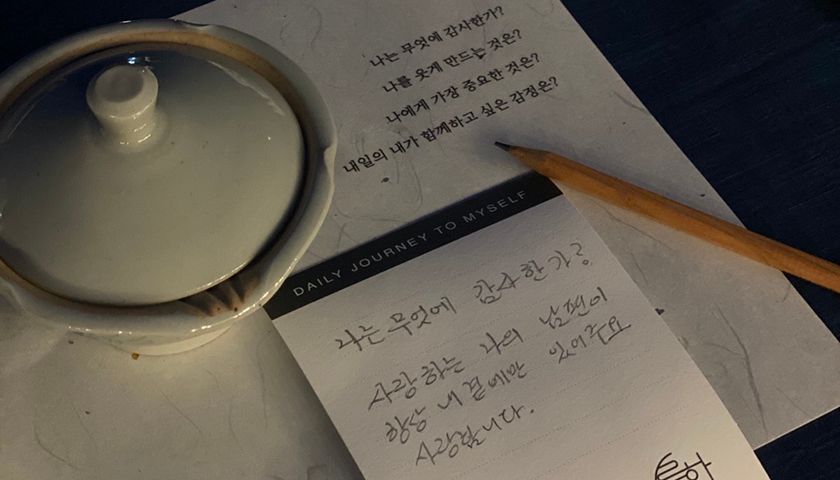 나는 무엇에 감사한가?
나를 웃게 만드는 것은?
나에게 가장 중요한 것은?
내일의 내가 함께하고 싶은 감정은?
DAILY JOURNEY TO MYSELF
나는 무엇에 감사한가?
사랑하는 나의 남편이
항상 내 곁에만 있어줘요
사랑합니다.